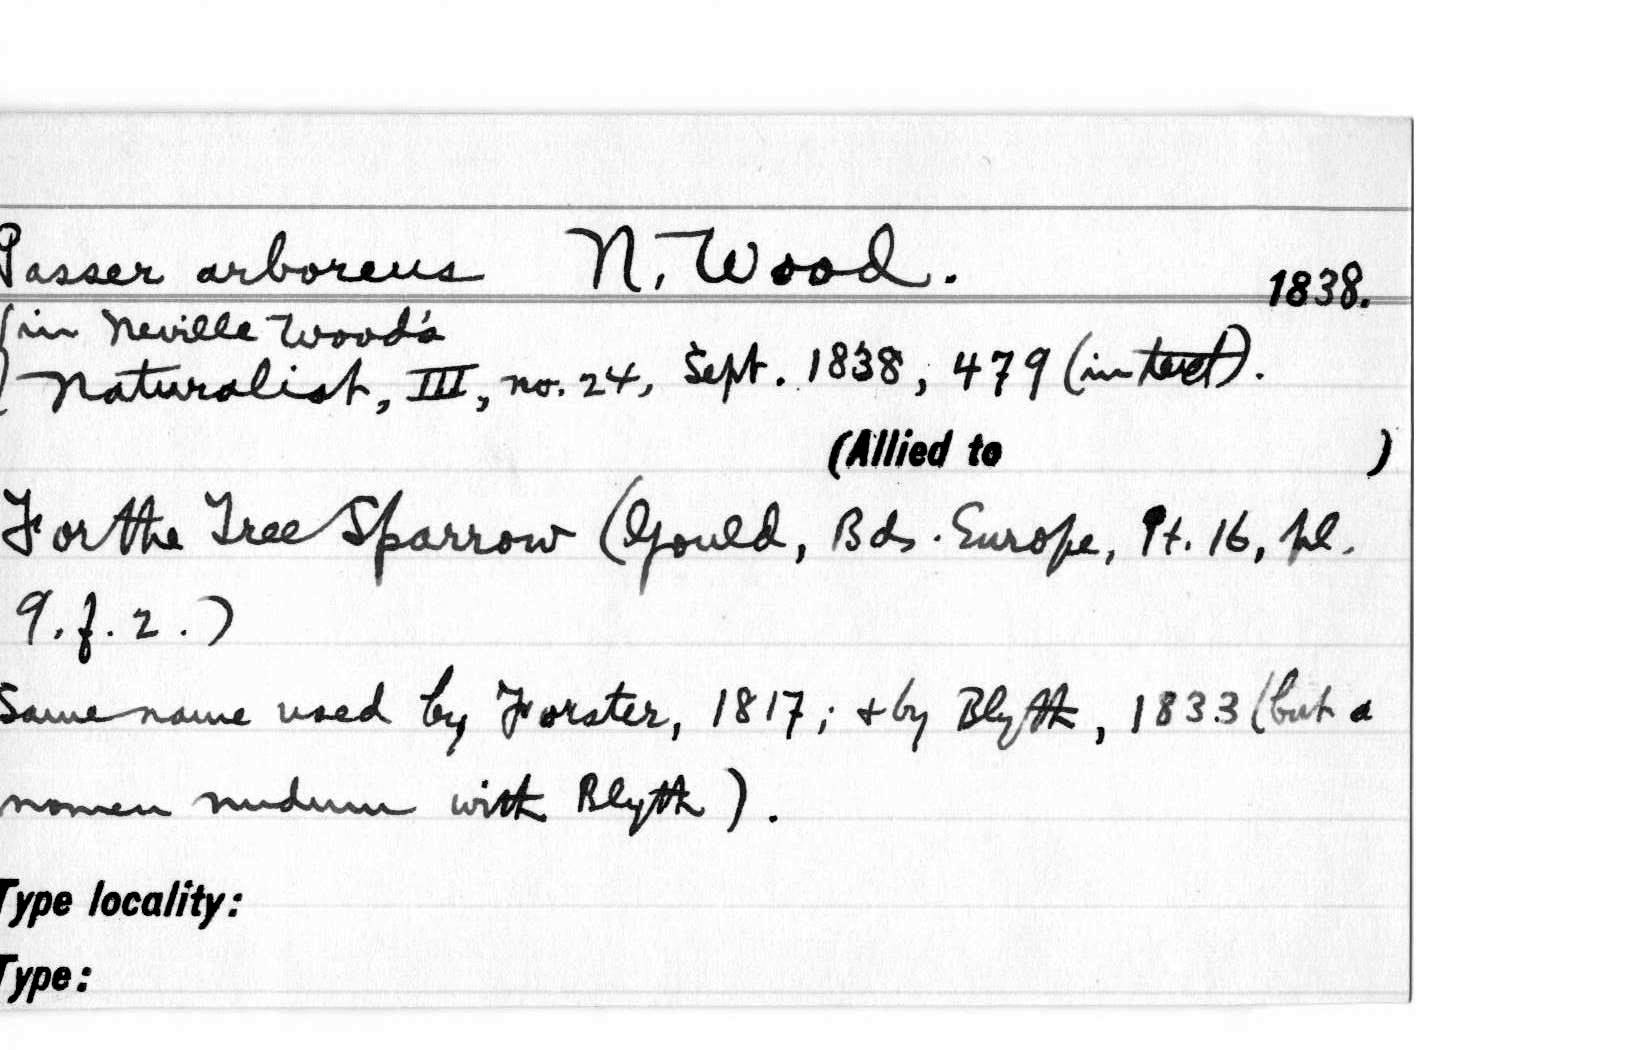 Passer arboreus N. Wood. 1838.
(in Neville Wood's
Naturalist, III, no. 24, Sept. 1838, 479 (in text).
(Allied to )
For the Tree Sparrow (Gould, Bds. Europe, Pt. 16, pl.
9. f. 2.)
Same name used by Forster, 1817; + by Blyth, 1833 (but a
nomen nudum with Blyth).
Type locality:
Type: